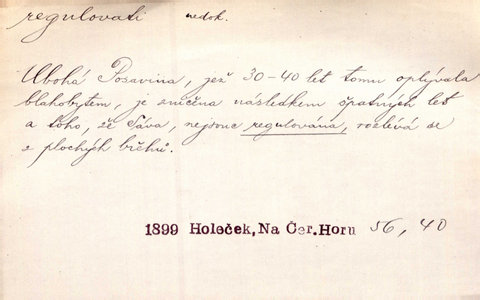 regulovati nedok.
Ubohá Posavina, jež 30-40 let tomu oplývala
blahobytem, je zničena následkem špatných let
a toho, že Sáva, nejsouc regulována, rozlévá se
z plochých břehů.
1899 Holeček, Na Čer. Horu 56, 40